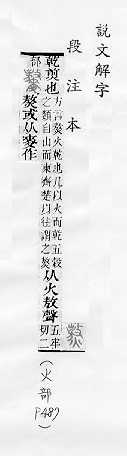 說文解字
段注本
乾煎也方言熬火乾也凡以火而乾五穀之類自山而東齊楚以往謂之熬从火敖聲五牢切二
部熬或从麥作
(火部 P487)